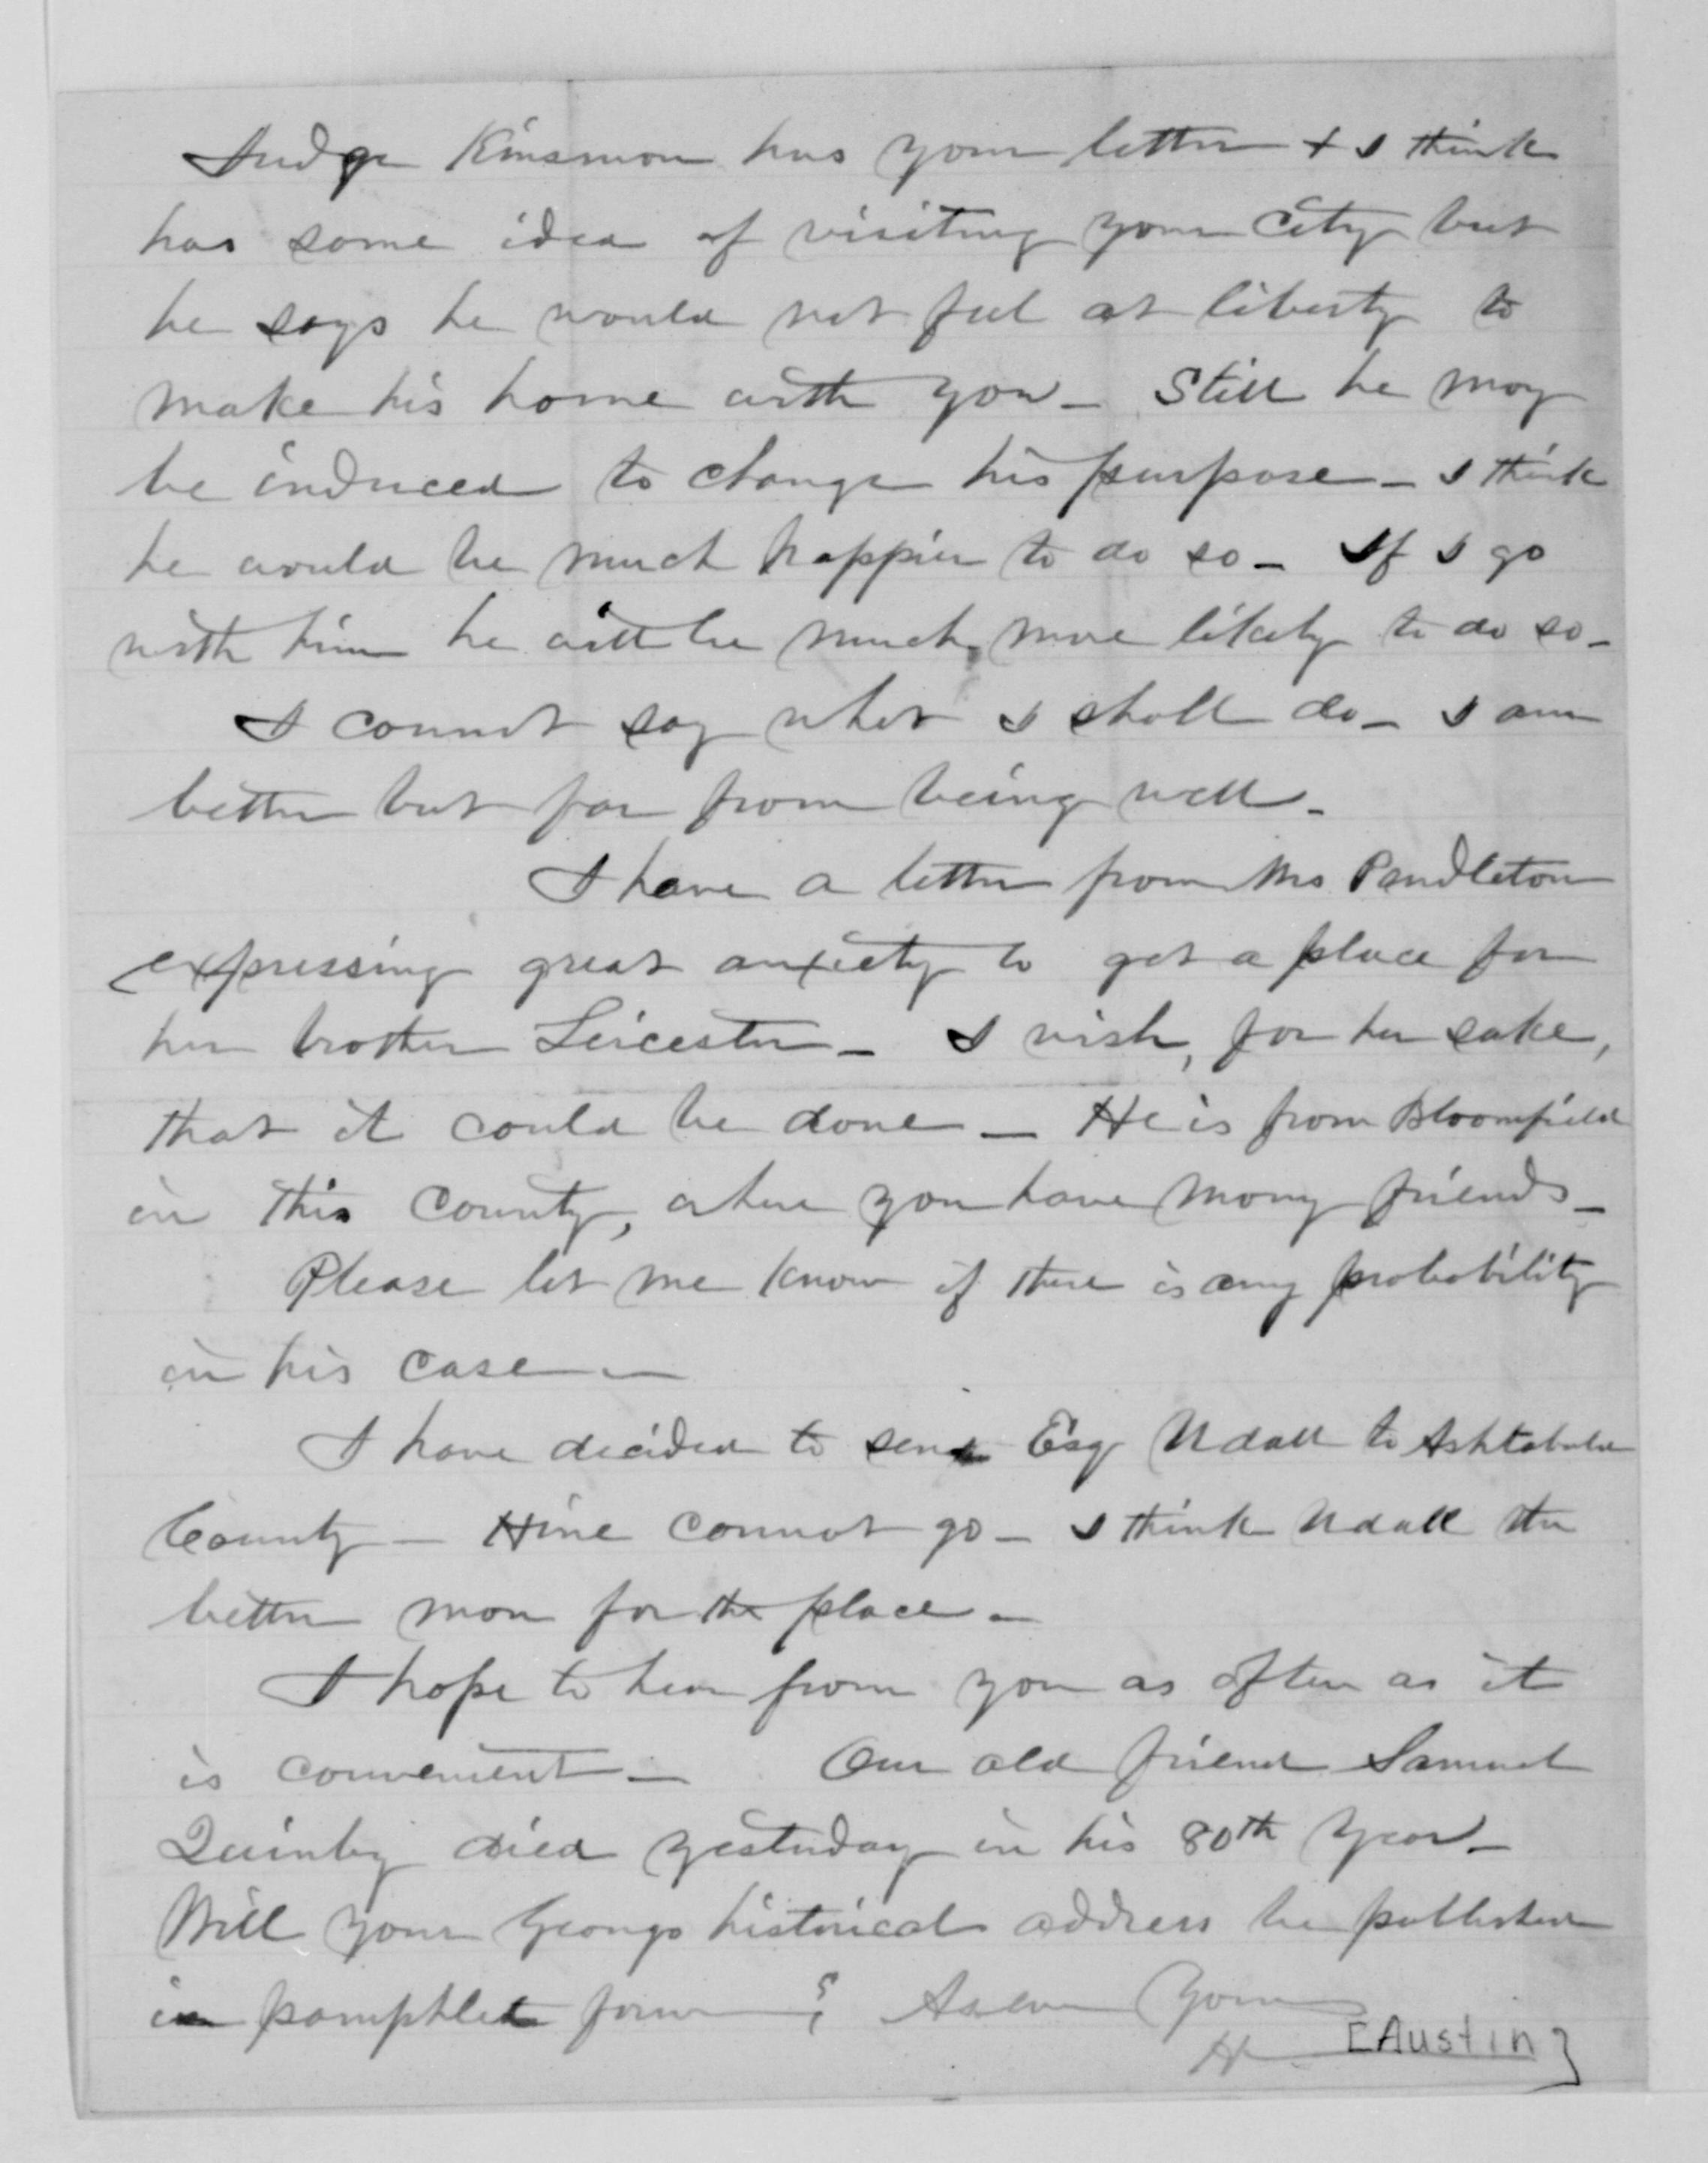 Judge Kinsman has your letter + I think
has some idea of visiting your City but
he says he would not feel at liberty to
make his home with you - Still he may
be induced to change his purpose - I think
he would be much happier to do so - If I go
with him he will be much more likely to do so -
I cannot say what I shall do - I am
better but far from being well -
I have a letter from Mrs Pendleton
expressing great anxiety to get a place for
her brother Leicester - I wish, for her sake,
that it could be done - He is from Bloomfield
in this County, where you have many friends -
Please let me know if there is any probability
in his case -
I have decided to send Esq Udall to Ashtabula
County - Hine cannot go - I think Udall the
better man for the place -
I hope to hear from you as often as it
is convenient - Our old friend Samuel
Quinby died yesterday in his 80th year -
Will your Geauga historical address be published
in pamphlet form ? As ever Yours
H [Austin]